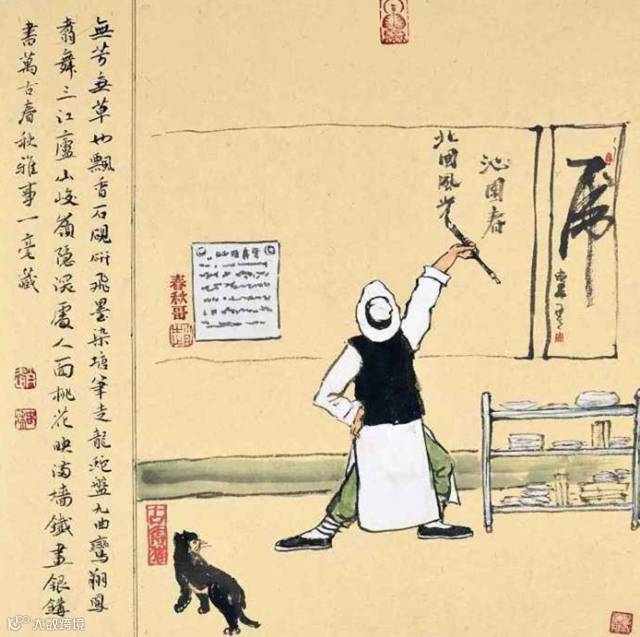 虎
沁園春
北國風光
春秋哥
無芳無草也飄香石硯研飛墨染塘筆走龍蛇盤九曲鸞翔鳳
翥舞三江廬山峻嶺隱深處人面桃花映滿牆鐵畫銀鉤
書萬古春秋雅事一毫藏
大数跨境